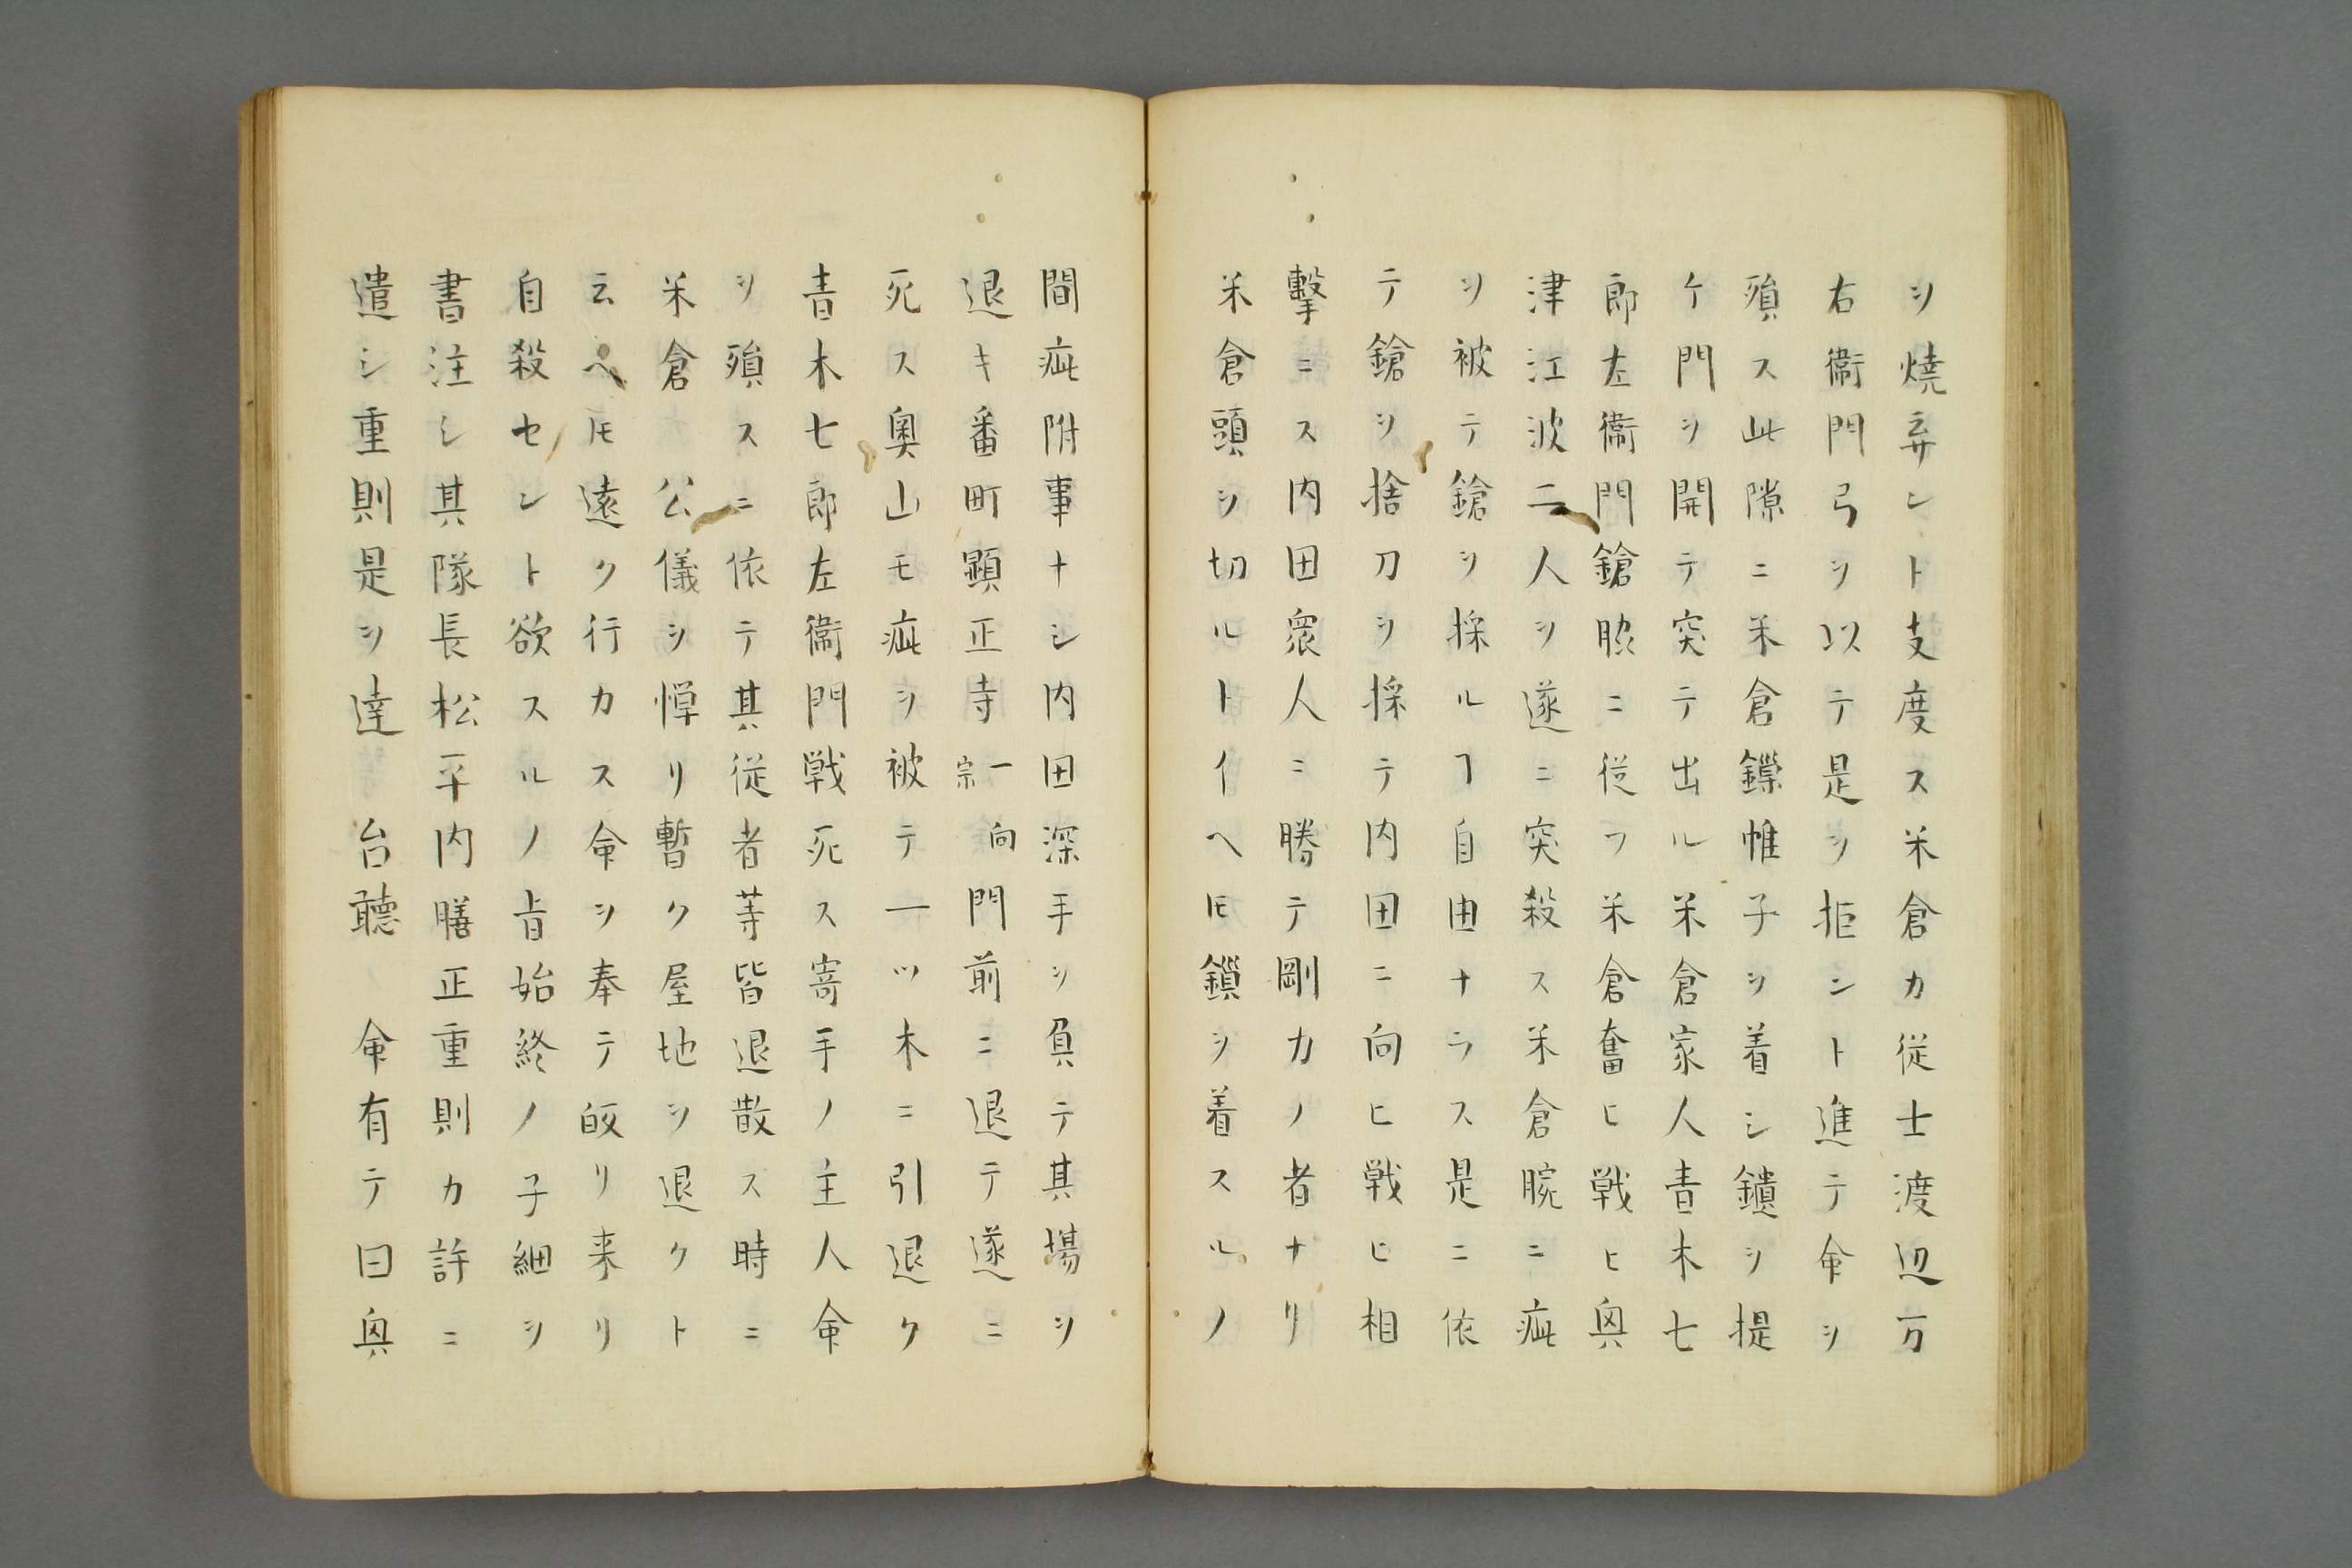 ヲ焼弃ント支度ス米倉カ従士渡辺万
右衞門弓ヲ以テ是ヲ拒ント進テ命ヲ
殞ス此隙ニ米倉鏁帷子ヲ着シ鑓ヲ提
ケ門ヲ開テ突テ出ル米倉家人青木七
郎左衞門鎗脇ニ従フ米倉奮ヒ戦ヒ奥
津江波二人ヲ遂ニ突殺ス米倉腕ニ疵
ヲ被テ鎗ヲ採ルヿ自由ナラス是ニ依
テ鎗ヲ捨刀ヲ採テ内田ニ向ヒ戦ヒ相
擊ニス内田衆人ニ勝テ剛力ノ者ナリ
米倉頭ヲ切ルトイヘ𪜈鎻ヲ着スルノ
間疵附事ナシ内田深手ヲ負テ其場ヲ
退キ番町顕正寺一向宗門前ニ退テ遂ニ
死ス奥山モ疵ヲ被テ一ツ木ニ引退ク
青木七郎左衞門戦死ス寄手ノ主人命
ヲ殞スニ依テ其従者等皆退散ス時ニ
米倉 公儀ヲ憚リ暫ク屋地ヲ退クト
云ヘ𪜈遠ク行カス命ヲ奉テ皈リ来リ
自殺セント欲スルノ旨始終ノ子細ヲ
書注シ其隊長松平内膳正重則カ許ニ
遣シ重則是ヲ達 台聽 命有テ曰奥